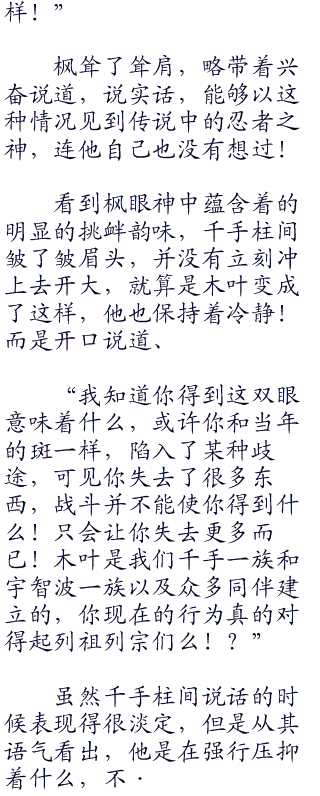 样！”
枫耸了耸肩，略带着兴
奋说道，说实话，能够以这
种情况见到传说中的忍者之
神，连他自己也没有想过！
看到枫眼神中蕴含着的
明显的挑衅韵味，千手柱间
皱了皱眉头，并没有立刻冲
上去开大，就算是木叶变成
了这样，他也保持着冷静！
而是开口说道、
“我知道你得到这双眼
意味着什么，或许你和当年
的斑一样，陷入了某种歧
途，可见你失去了很多东
西，战斗并不能使你得到什
么！只会让你失去更多而
已！木叶是我们千手一族和
宇智波一族以及众多同伴建
立的，你现在的行为真的对
得起列祖列宗们么！？”
虽然千手柱间说话的时
候表现得很淡定，但是从其
语气看出，他是在强行压抑
着什么，不·